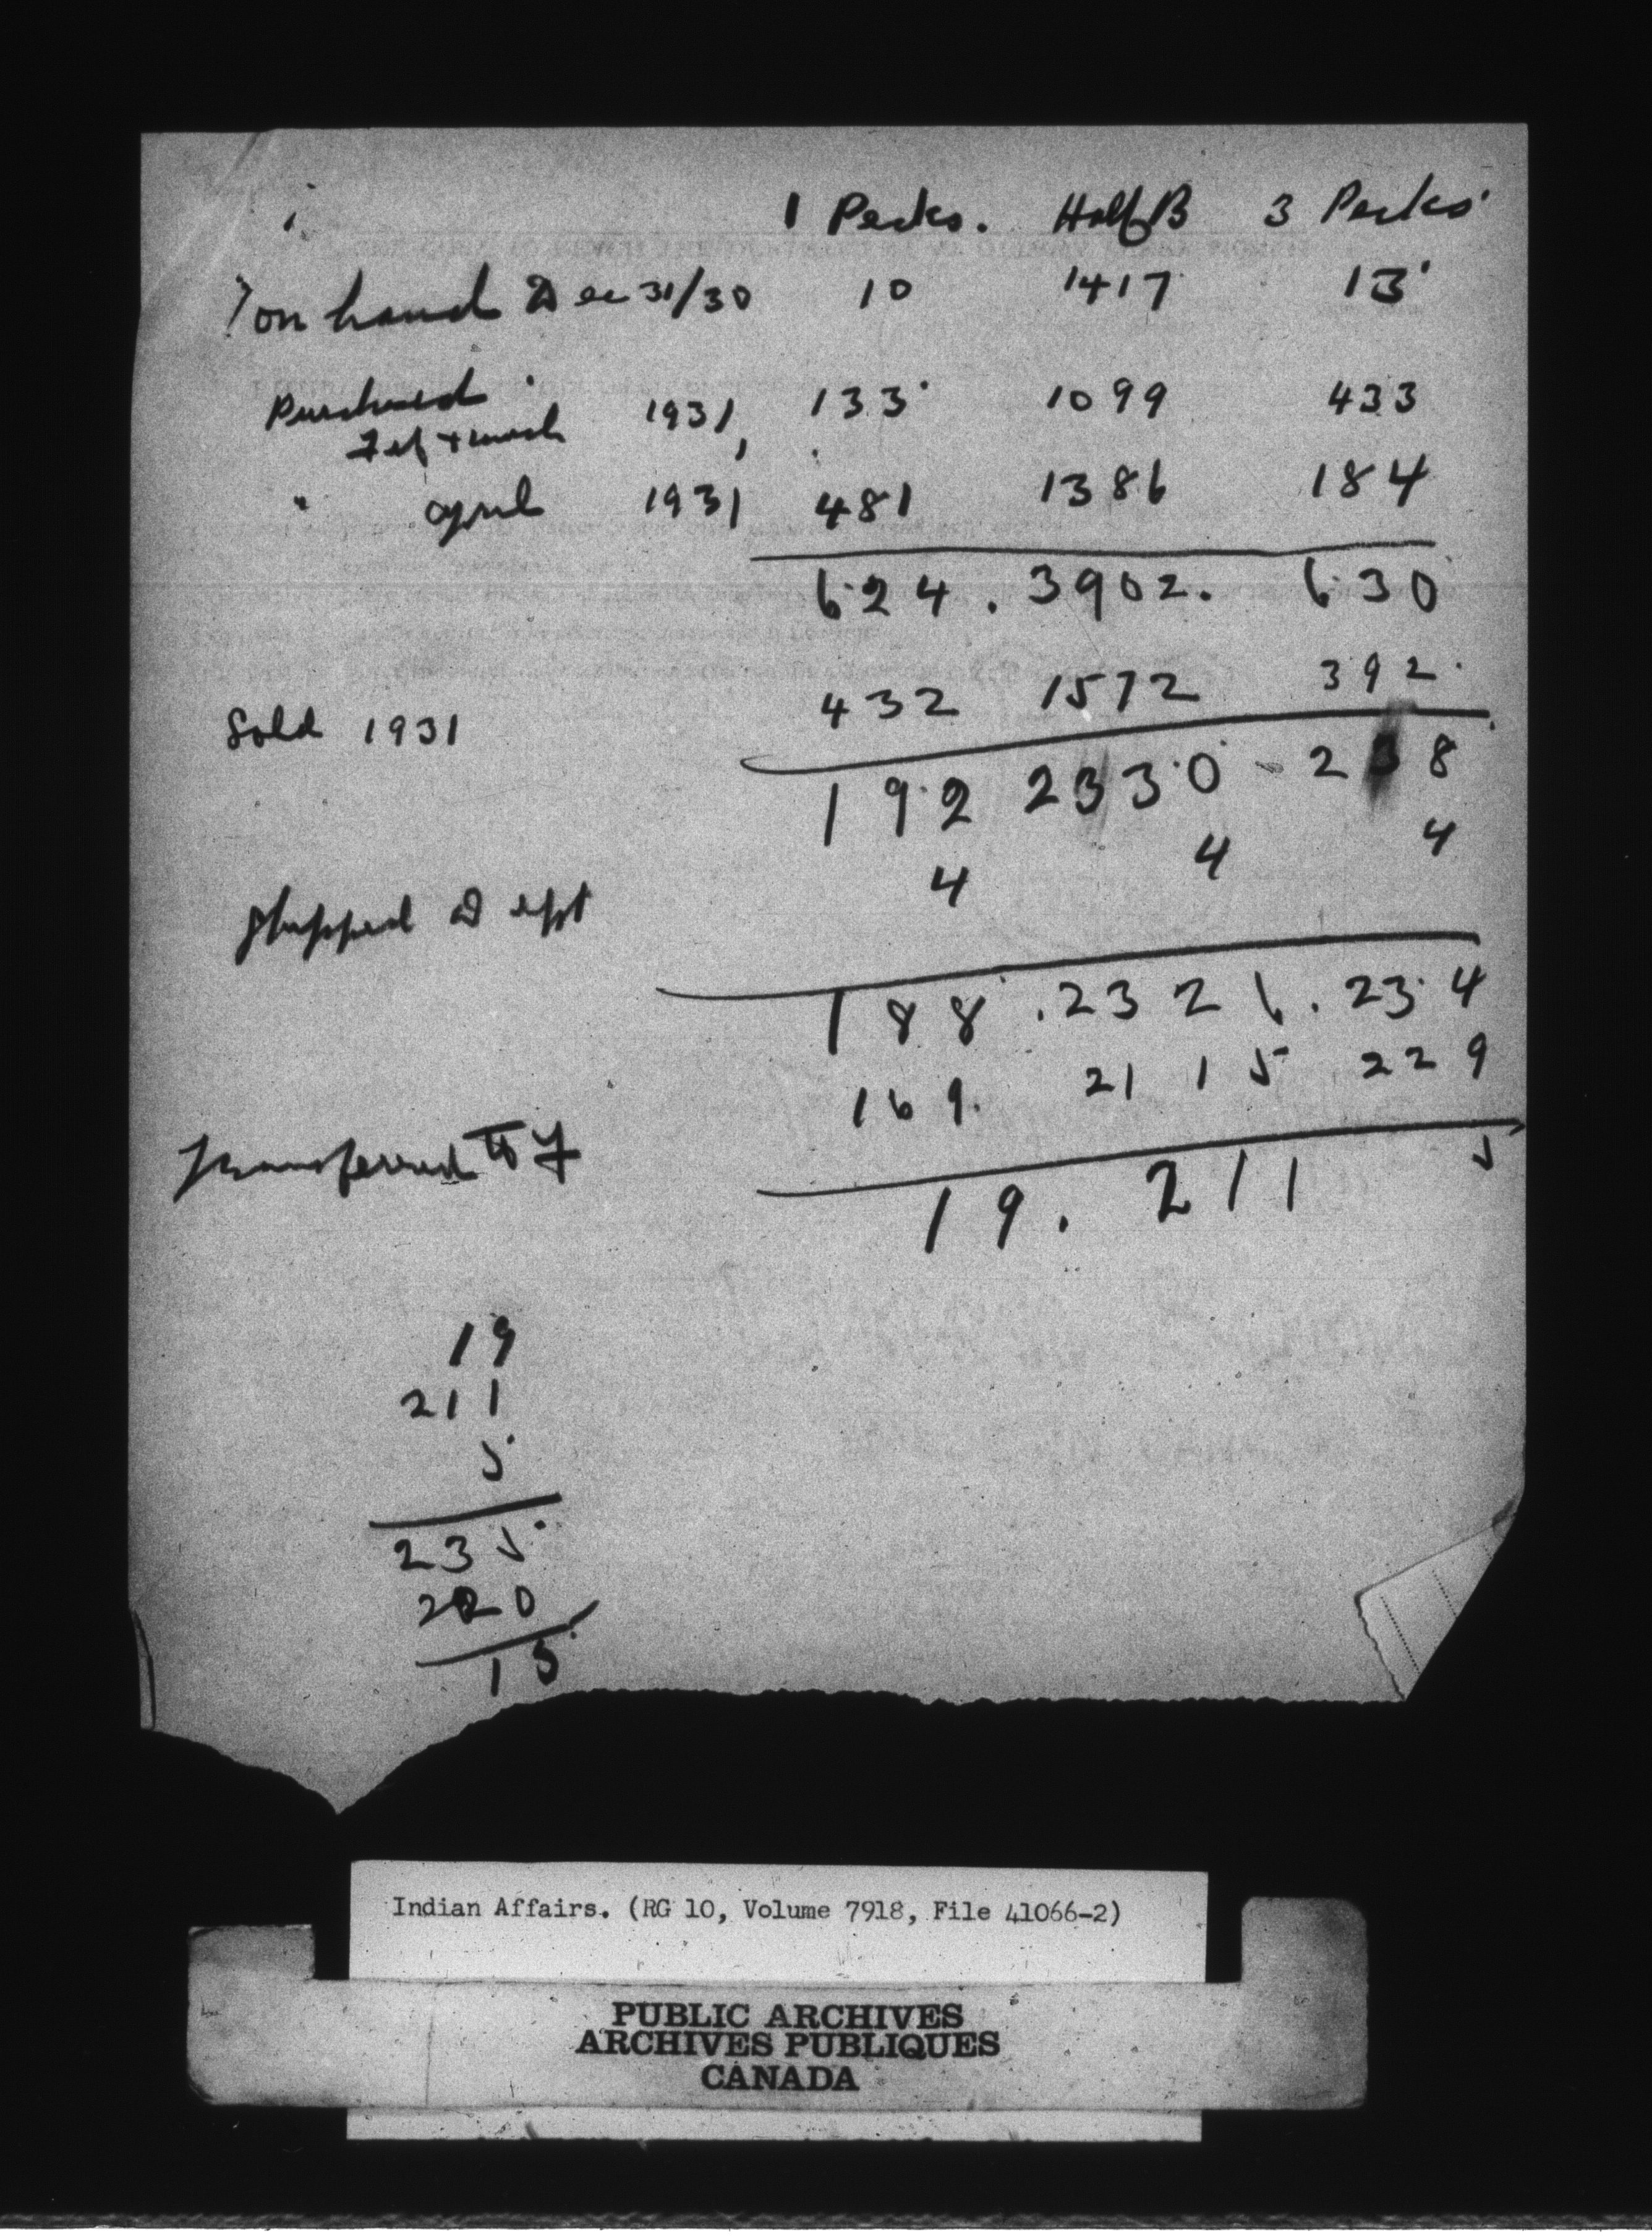 1 Pecks. Half B 3 Pecks
on hand Dec 31/30 10 1417 13
Purchased
Feb + march 1931, 133 1099 433
" april 1931 481 1386 184
624. 3902. 630
Sold 1931 432 1572 392
192 2330 - 238
Shipped Dept 4 4 4
188 .2326. 234
Transferred 169. 2115 229
19. 211 5
19
211
5
235
220
15
Indian Affairs. (RG 10, Volume 7918, File 41066-2)
PUBLIC ARCHIVES
ARCHIVES PUBLIQUES
CANADA